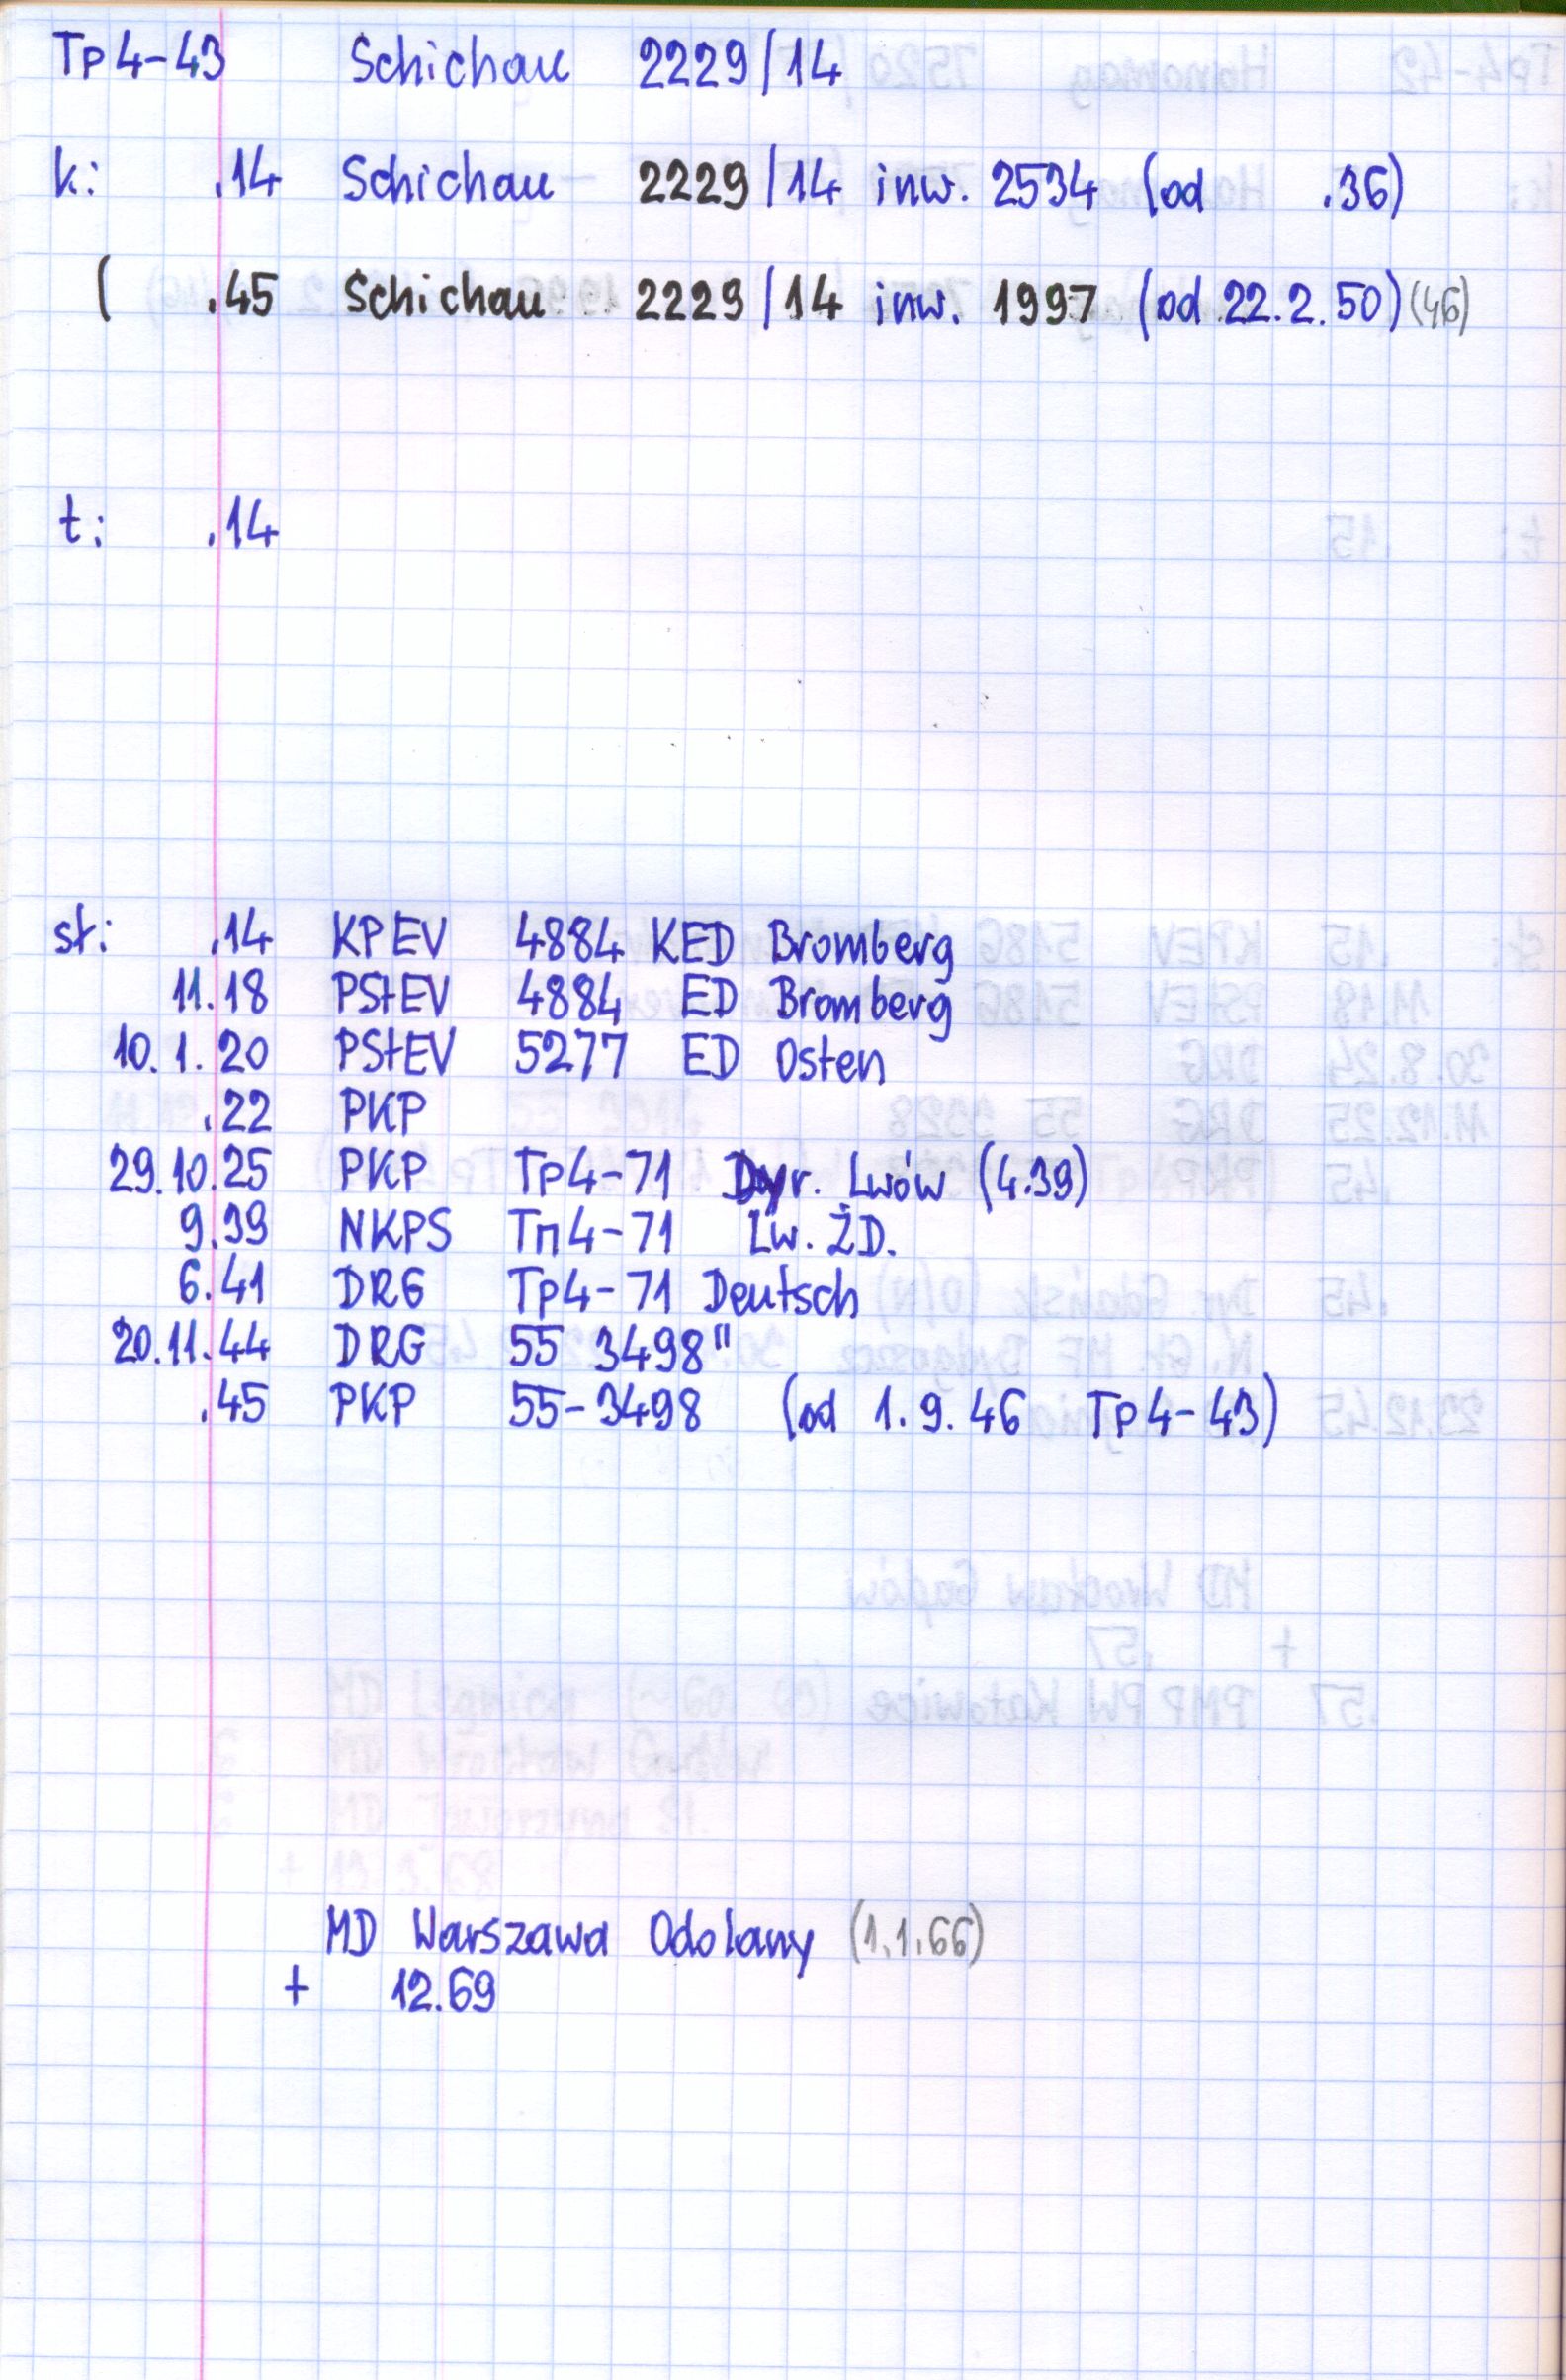 Tp4-43 Schichau 2229/14
k: .14 Schichau 2229/14 inw. 2534 (od .36)
( .45 Schichau 2229/14 inw. 1997 (od 22.2.50) (46)
t: .14
st: .14 KPEV 4884 KED Bromberg
11.18 PStEV 4884 ED Bromberg
10.1.20 PStEV 5277 ED Osten
.22 PKP
29.10.25 PKP Tp4-71 Dyr. Lwów (4.39)
9.39 NKPS Тп4-71 Lw. Ż.D.
6.41 DRG Tp4-71 Deutsch
20.11.44 DRG 55 3498"
.45 PKP 55-3498 (od 1.9.46 Tp4-43)
MD Warszawa Odolany (1.1.66)
+ 12.69